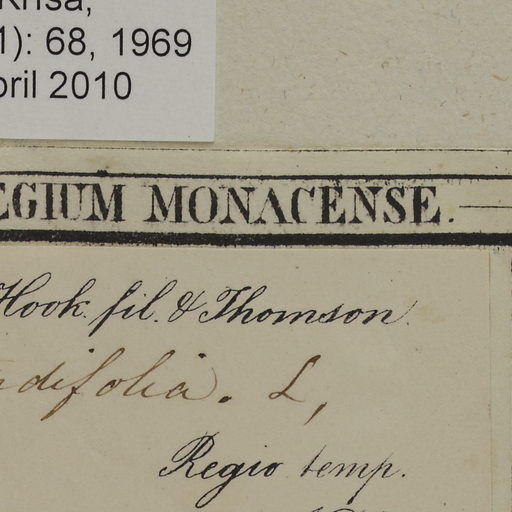 Krisa,
1): 68, 1969
pril 2010
EGIUM MONACENSE.
Hook. fil. & Thomson.
difolia. L,
Regio temp.